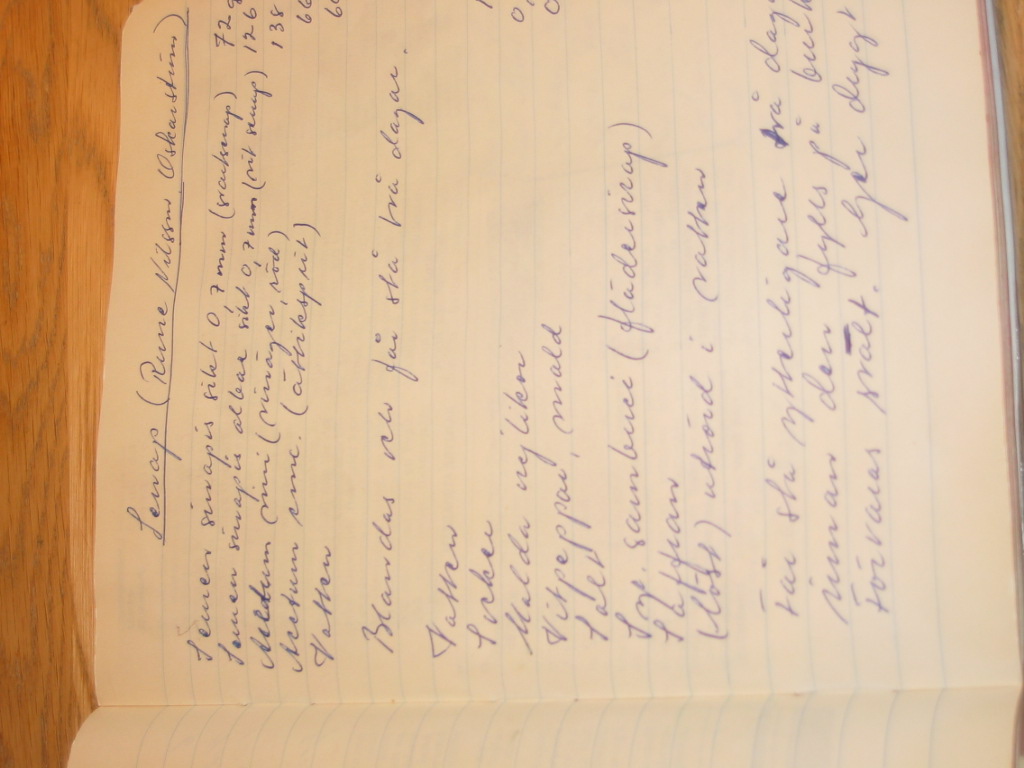 Senap (Rune Nilsson Oskarström)
Semen sinapis sikt 0,7 mm (svartsenap) 72 g
Semen sinapis albae sikt 0,7 mm (vit senap) 126
Acetum vini (vinäger, röd) 138
Acetum conc. (ättiksprit) 66
Vatten 60
Blandas och får stå två dagar.
Vatten 1
Socker 0,
Malda nejlikor 0
Vitpeppar, mald
Salt
sambuci (flädersirap)
Saffran
(löst) utrörd i vatten
Får stå ytterligare två dag
innan den fylls på burk
Förvaras svalt. Ger drygt